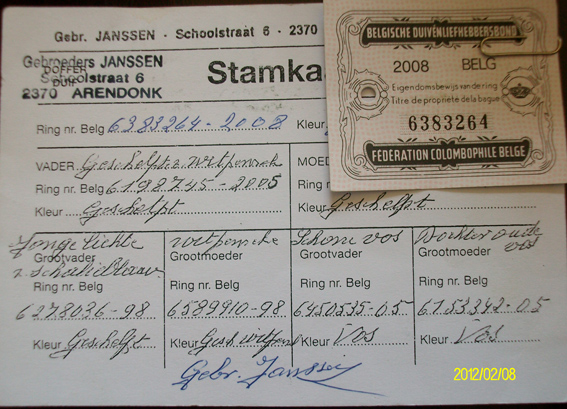 Gebr. JANSSEN - Schoolstraat 6 - 2370
Gebroeders JANSSEN
DOFFER
DUIF
Schoolstraat 6
2370 ARENDONK
Stamka
Ring nr. Belg 6383264-2008 Kleur
VADER Geschelpte witpensch
Ring nr. Belg 6198745-2005
Kleur Geschelpt
MOED
Ring nr.
Kleur Geschelpt
Jonge lichte
Grootvader
Ring nr. Belg
6278036-98
Kleur Geschelpt
witpensche
Grootmoeder
Ring nr. Belg
6589910-98
Kleur Gesch witpens
Schone vos
Grootvader
Ring nr. Belg
6450535-05
Kleur Vos
Dochter oude vos
Grootmoeder
Ring nr. Belg
6753342-05
Kleur Vos
Gebr. Janssen
BELGISCHE DUIVENLIEFHEBBERSBOND
2008 BELG
Eigendomsbewijs van de ring
Titre de propriété de la bague
6383264
FEDERATION COLOMBOPHILE BELGE
2012/02/08